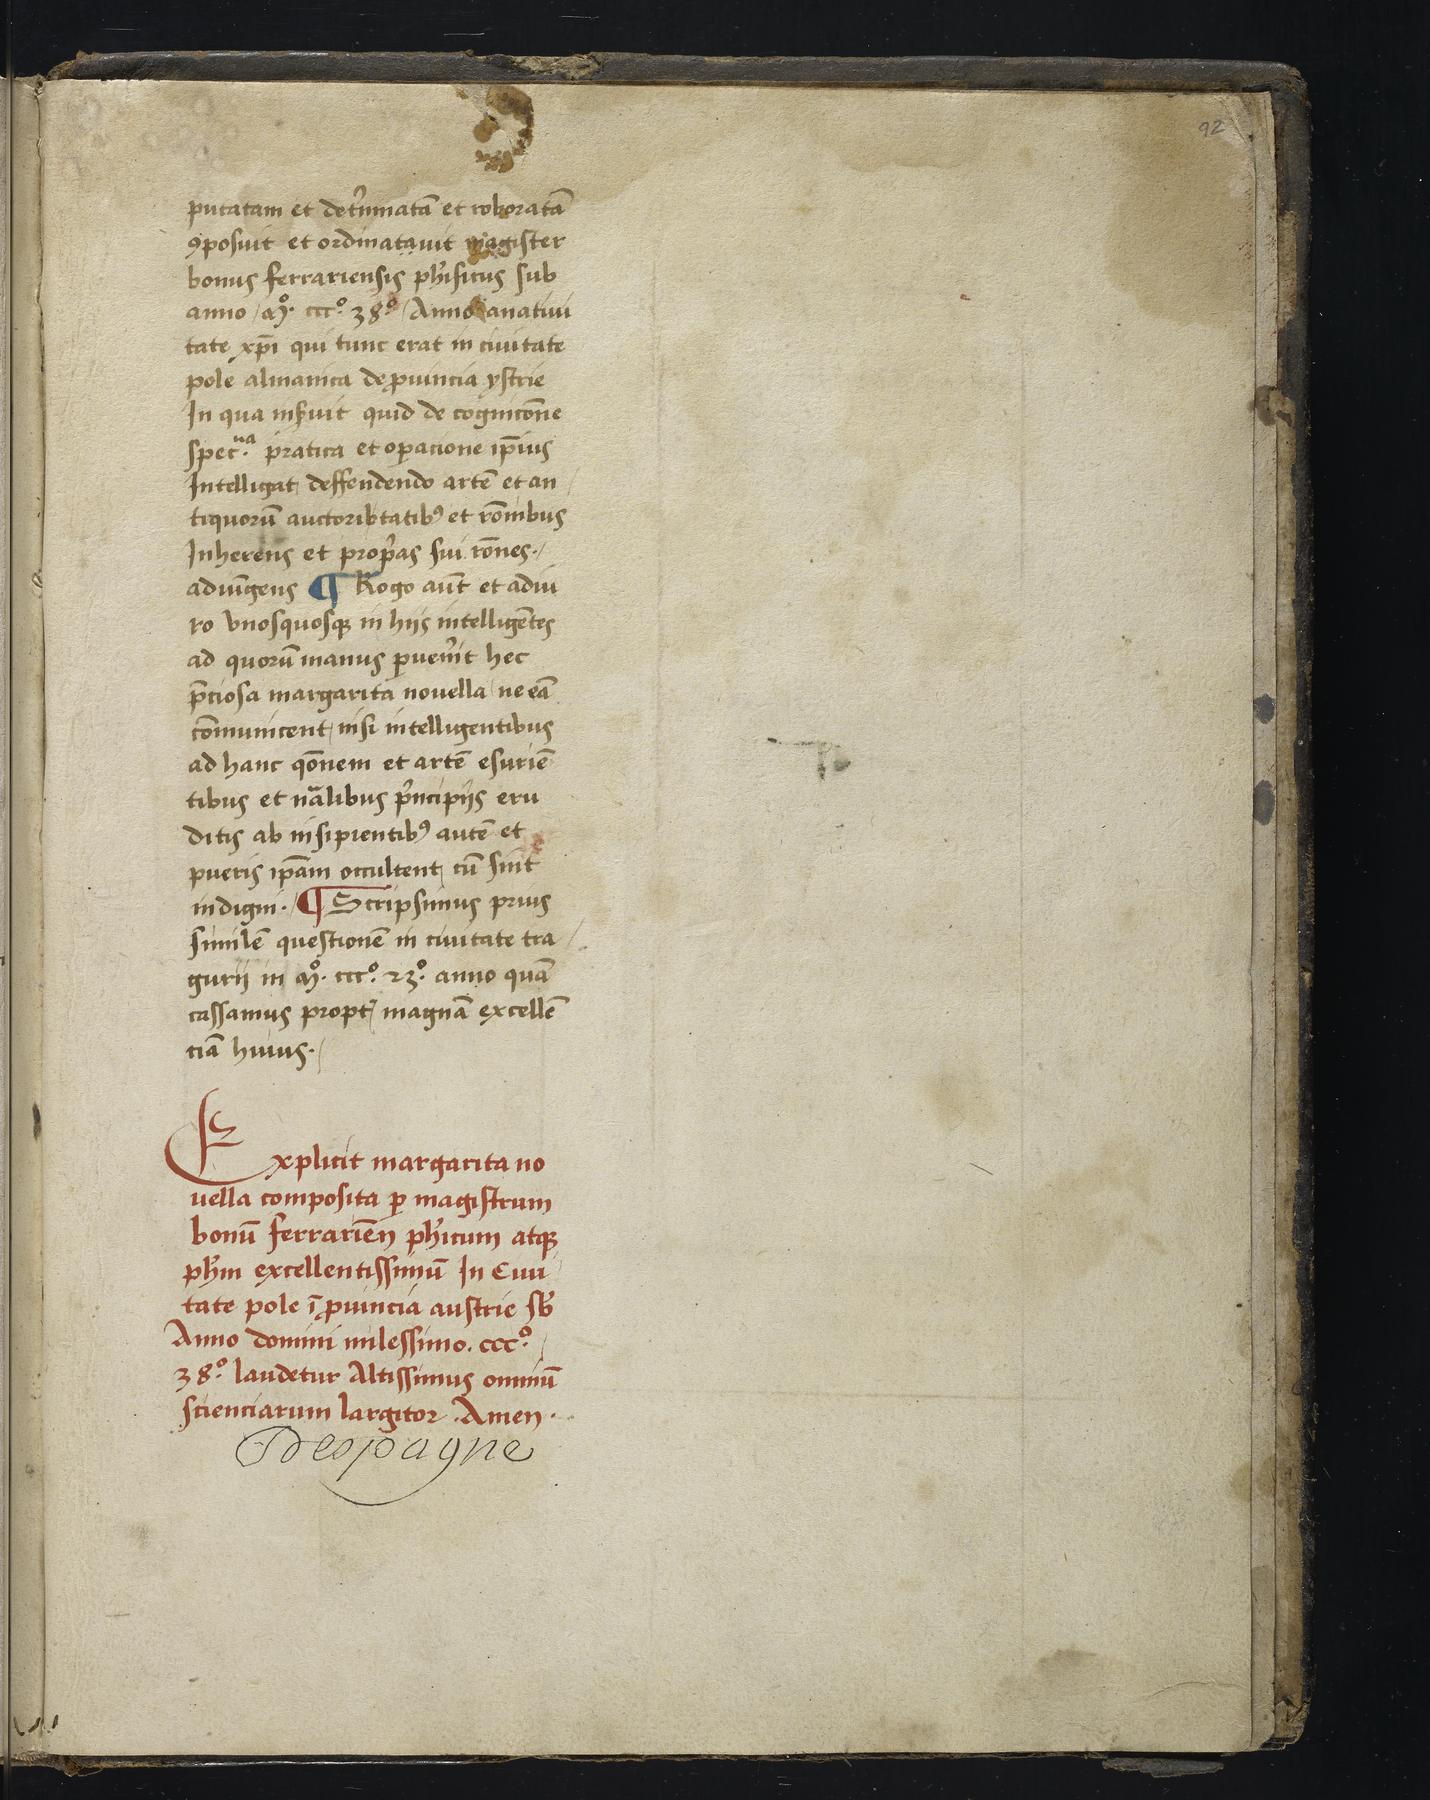 92
putatam et det̉minatā et roboratā
ꝯposuit et ordinatauit magister
bonus ferrariensis ph̉isicus sub
anno / Mͦ. cccͦ. 38ͦ / Anno anatiui
tate xp̄i qui tunc erat in ciuitate
pole almanica de ꝓuincia ystrie
In qua inquit quid de cognicōne
specͧᵃ. pratica et oꝑacione ip̄ius
Intelligat deffendendo artē et an
tiquorū auctoribtatibꝰ et rōnibus
Inherens et prop̉as sui rōnes. /
adiūgens ¶ Rogo aūt et adiu
ro vnosquosqꝫ in hijs intelligētes
ad quorū manus ꝑuen̉it hec
p̄ciosa margarita nouella / ne eā
cōmunicent / nisi intelligentibus
ad hanc qōnem et artē esuriē
tibus et nālibus p̉ncipijs eru
ditis ab insipientibꝰ autē et
pueris ip̄am occultent cū sint
indigni. / ¶ Scripsimus prius
similē questionē in ciuitate tra /
gurij in Mͦ. cccͦ. 23ͦ. anno quā
cassamus propt̉ magnā excellē
ciā huius. /
Explicit margarita no
uella composita ꝑ magistrum
bonū ferrariēn ph̉icum atqꝫ
ph̉m excellentissimū In Ciui
tate pole ī ꝓuincia austrie sb̄
Anno domini milessimo. cccͦ. /
38ͦ. laudetur Altissimus omniū
scienciarum largitor. Amen.
Despagne